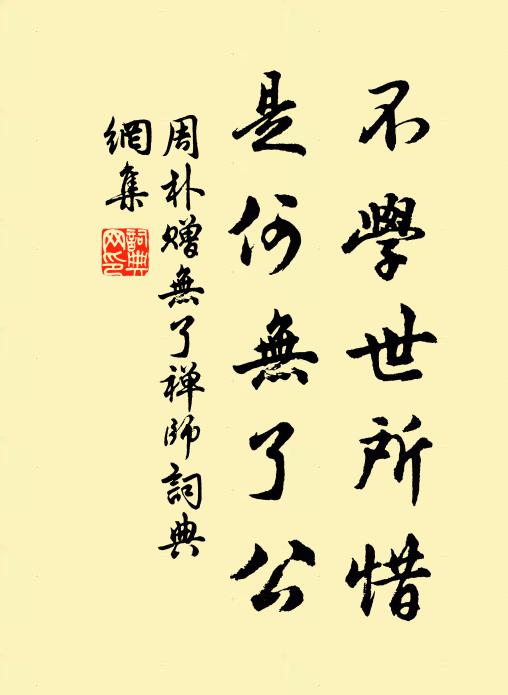 不學世所惜
是何無了公
周朴贈無了禅師詞典
網集
詞典網印